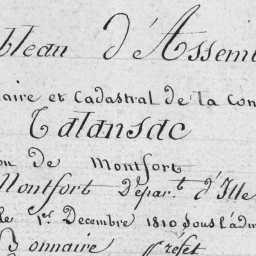 bleau d'Assemb
aire et Cadastral de la Com
Talansac
on de Montfort
Montfort Dépar.t d'Ille
le 1er Decembre 1810 sous l'adm
Bonnaire Préfet